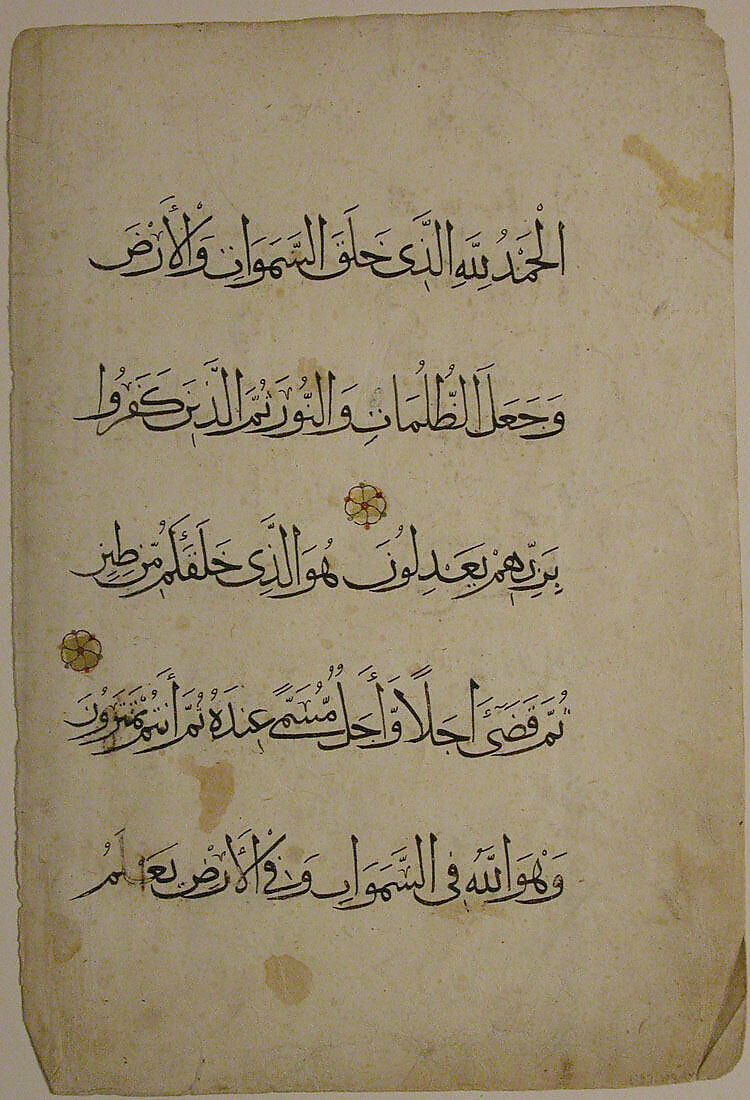 الْحَمْدُ لِلَّهِ الَّذِى خَلَقَ السَّمَوَاتِ وَالْأَرْضَ
وَجَعَلَ الظُّلُمَاتِ وَالنُّورَ ثُمَّ الَّذِينَ كَفَرُوا
بِرَبِّهِمْ يَعْدِلُونَ هُوَ الَّذِى خَلَقَكُمْ مِّن طِينٍ
ثُمَّ قَضَىٰٓ أَجَلًا وَأَجَلٌ مُّسَمًّى عِندَهُ ثُمَّ أَنتُمْ تَمْتَرُونَ
وَهُوَ اللَّهُ فِى السَّمَوَاتِ وَفِى الْأَرْضِ يَعْلَمُ